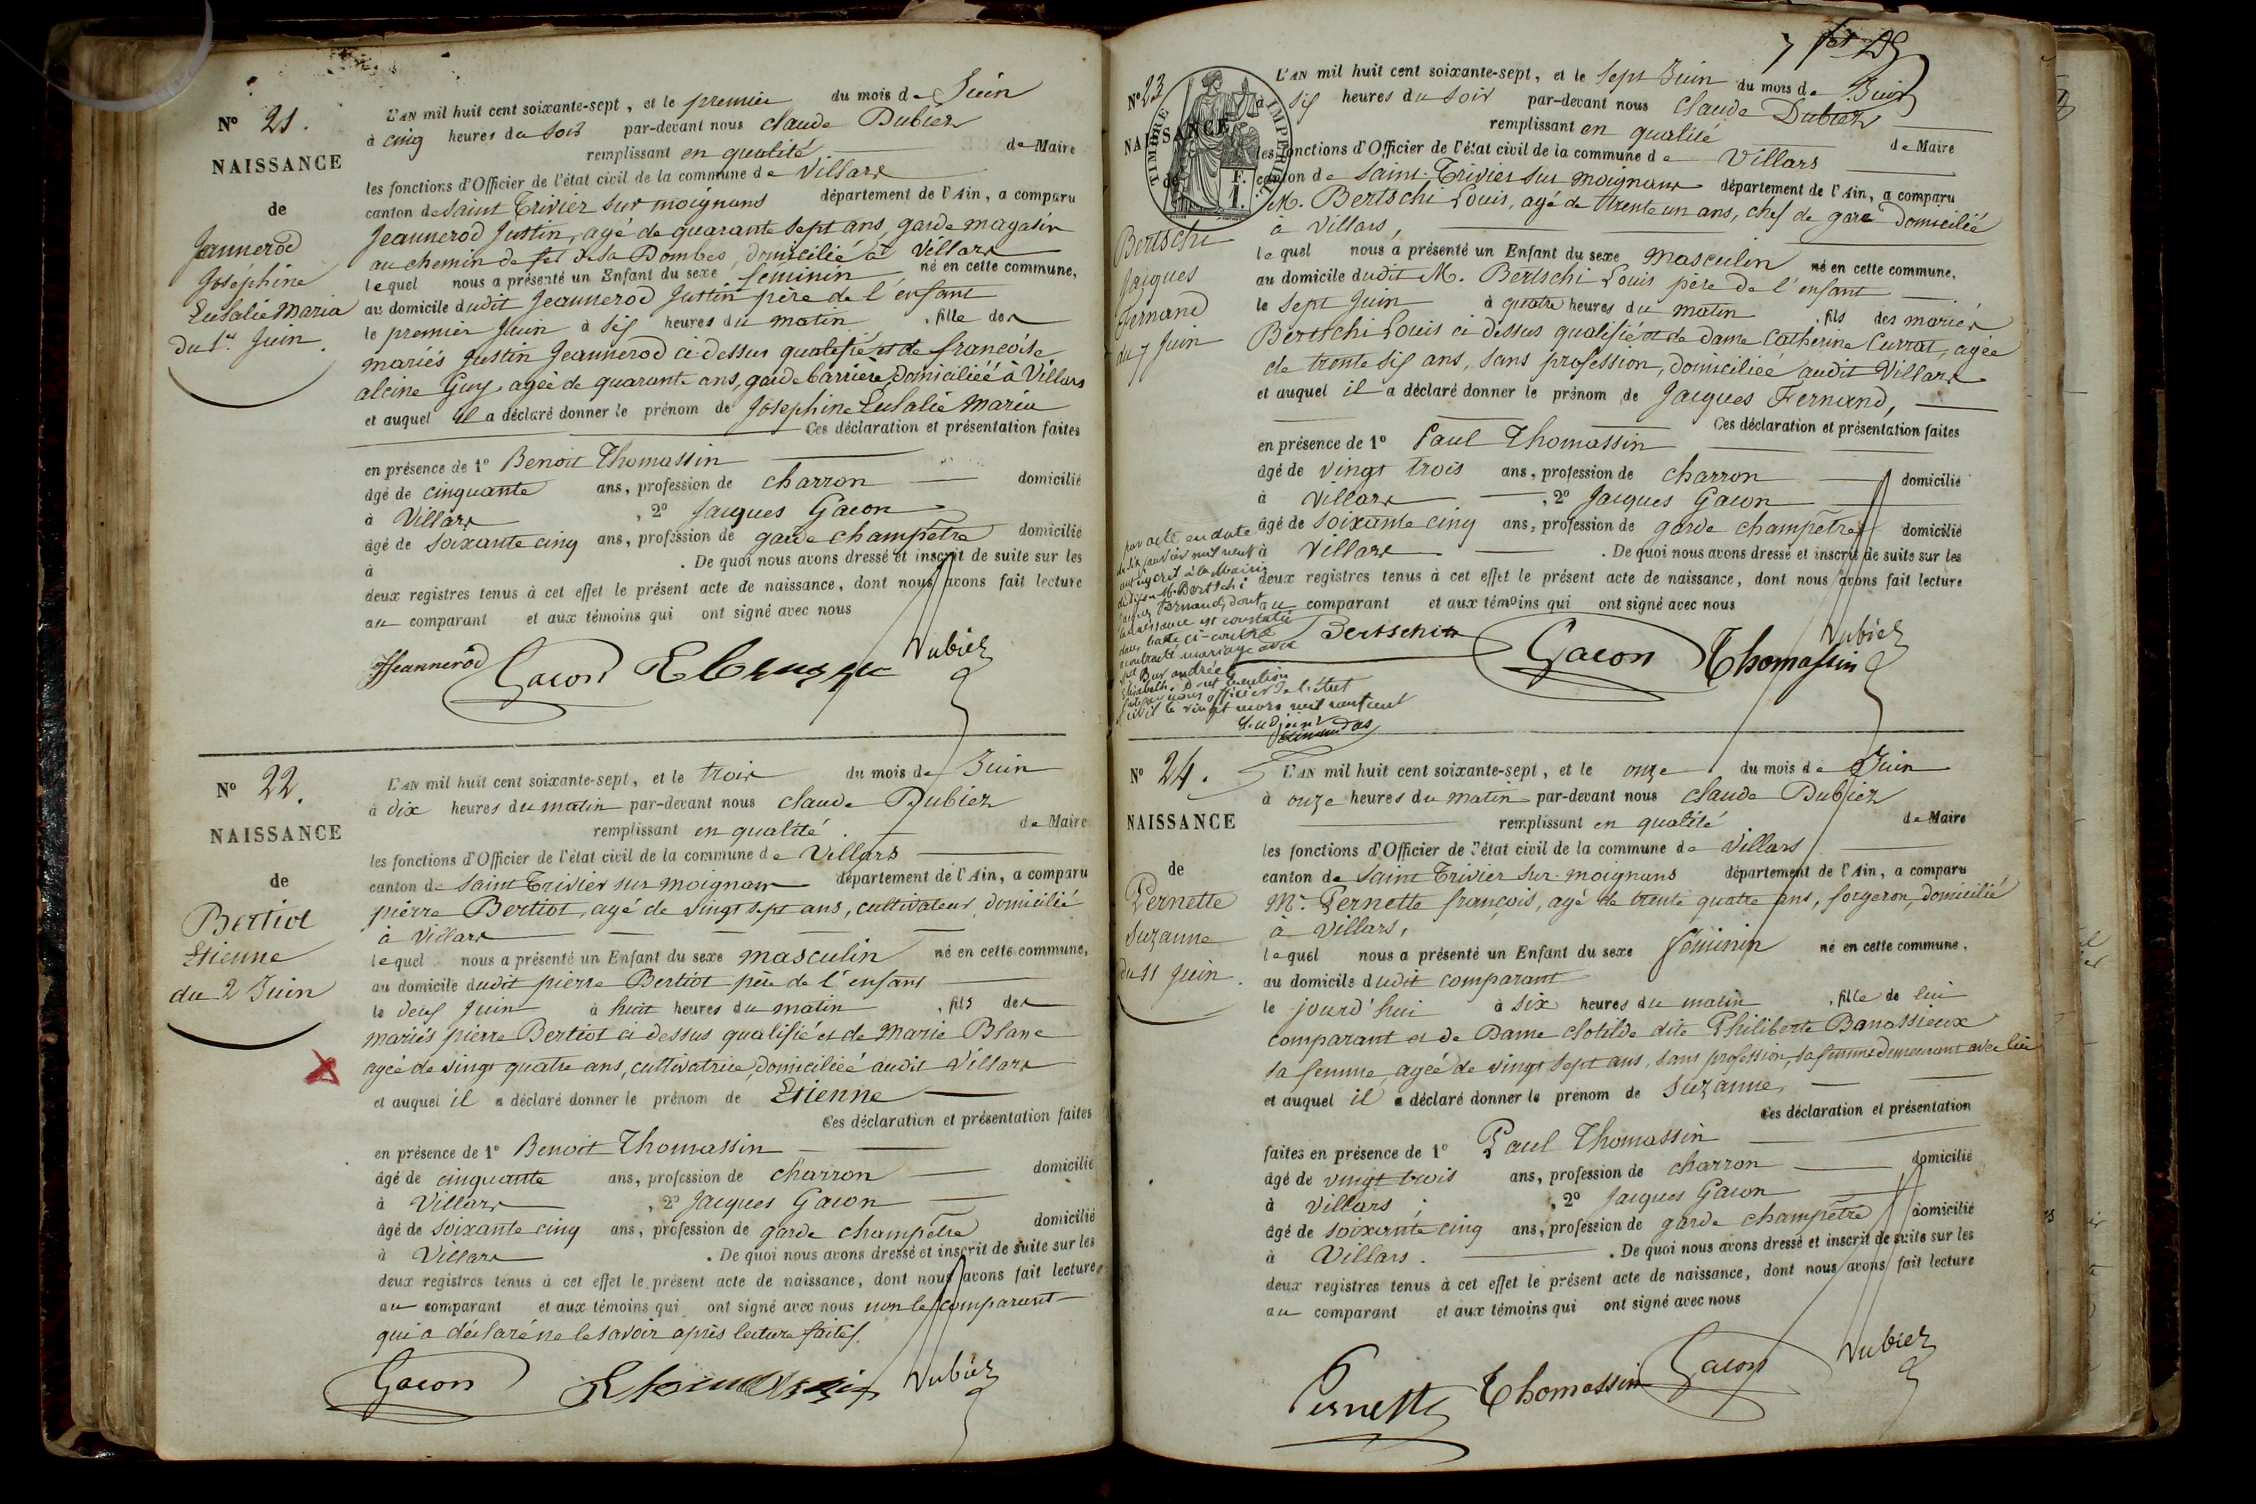 N° 21.
NAISSANCE
de
Jannerod
Joséphine
Eulalie Maria
du 1er Juin.
L'AN mil huit cent soixante-sept, et le premier du mois de Juin
à cinq heures du soir par-devant nous claude Dubiez
remplissant en qualité de Maire
les fonctions d'Officier de l'état civil de la commune de Villars
canton de saint Trivier sur moignans département de l'Ain, a comparu
Jeannerod Justin, agé de quarante sept ans, garde magasin
au chemin de fer de la Dombes, domicilié à Villars
lequel nous a présenté un Enfant du sexe feminin, né en cette commune,
au domicile dudit Jeannerod Justin père de l'enfant
le premier Juin à six heures du matin, fille des
mariés Justin Jeannerod ci-dessus qualifié et de françoise
alcine Guy, agée de quarante ans, garde barrière, domiciliée à Villars
et auquel il a déclaré donner le prénom de Joséphine Eulalie Maria
Ces déclaration et présentation faites
en présence de 1° Benoit Thomassin
âgé de cinquante ans, profession de charron domicilié
à Villars, 2° Jacques Gacon
âgé de soixante cinq ans, profession de garde champêtre domicilié
à . De quoi nous avons dressé et inscrit de suite sur les
deux registres tenus à cet effet le présent acte de naissance, dont nous avons fait lecture
au comparant et aux témoins qui ont signé avec nous
Jeannerod Gacon Dubiez
N° 22.
NAISSANCE
de
Bertiot
Etienne
du 2 Juin
L'AN mil huit cent soixante-sept, et le trois du mois de Juin
à dix heures du matin par-devant nous claude Dubiez
remplissant en qualité de Maire
les fonctions d'Officier de l'état civil de la commune de Villars
canton de saint Trivier sur moignans département de l'Ain, a comparu
pierre Bertiot, agé de vingt sept ans, cultivateur, domicilié
à Villars
lequel nous a présenté un Enfant du sexe masculin né en cette commune,
au domicile dudit pierre Bertiot père de l'enfant
le deux Juin à huit heures du matin, fils des
mariés pierre Bertiot ci dessus qualifié et de Marie Blanc
agée de vingt quatre ans, cultivatrice, domiciliée audit Villars
et auquel il a déclaré donner le prénom de Etienne
Ces déclaration et présentation faites
en présence de 1° Benoit Thomassin
âgé de cinquante ans, profession de charron domicilié
à Villars, 2° Jacques Gacon
âgé de soixante cinq ans, profession de garde champêtre domicilié
à Villars . De quoi nous avons dressé et inscrit de suite sur les
deux registres tenus à cet effet le présent acte de naissance, dont nous avons fait lecture
au comparant et aux témoins qui ont signé avec nous non le comparant
qui a déclaré ne le savoir après lecture faite.
Gacon Dubiez
N° 23
NAISSANCE
de
TIMBRE IMPERIAL
1 F.
Bertschi
Jacques
Fernand
du 7 Juin
L'AN mil huit cent soixante-sept, et le sept Juin du mois de Juin
à six heures du soir par-devant nous claude Dubiez
remplissant en qualité de Maire
les fonctions d'Officier de l'état civil de la commune de Villars
canton de saint-Trivier sur moignans département de l'Ain, a comparu
M. Bertschi Louis, agé de trente un ans, chef de gare domicilié
à Villars,
lequel nous a présenté un Enfant du sexe masculin, né en cette commune,
au domicile dudit M. Bertschi Louis père de l'enfant
le sept Juin à quatre heures du matin, fils des mariés
Bertschi Louis ci dessus qualifié et de dame Catherine Currat, agée
de trente six ans, sans profession, domiciliée audit Villars
et auquel il a déclaré donner le prénom de Jacques Fernand,
Ces déclaration et présentation faites
en présence de 1° Paul Thomassin
âgé de vingt trois ans, profession de charron domicilié
à Villars, 2° Jacques Gacon
âgé de soixante cinq ans, profession de garde champêtre domicilié
à Villars . De quoi nous avons dressé et inscrit de suite sur les
deux registres tenus à cet effet le présent acte de naissance, dont nous avons fait lecture
au comparant et aux témoins qui ont signé avec nous
par acte en date
à la Mairie
M. Bertschi
Fernand, dont
naissance est constatée
dans l'acte ci-contre
a contracté mariage avec
andrée
Elisabeth. Dont mention
officier de l'état
civil le vingt mars mil neuf cent
L'adjoint
Bertschi Gacon Thomassin Dubiez
N° 24.
NAISSANCE
de
Pernette
Suzanne
du 11 Juin.
L'AN mil huit cent soixante-sept, et le onze du mois de Juin
à onze heures du matin par-devant nous claude Dubiez
remplissant en qualité de Maire
les fonctions d'Officier de l'état civil de la commune de Villars
canton de saint Trivier sur moignans département de l'Ain, a comparu
Mr. Pernette françois, agé de trente quatre ans, forgeron, domicilié
à Villars,
lequel nous a présenté un Enfant du sexe féminin né en cette commune,
au domicile dudit comparant
le jourd'hui à six heures du matin, fille de lui
comparant et de Dame clotilde dite Philiberte Banassieux
sa femme, agée de vingt sept ans, sans profession, sa femme demeurant avec lui
et auquel il a déclaré donner le prénom de Suzanne,
Ces déclaration et présentation
faites en présence de 1° Paul Thomassin
âgé de vingt trois ans, profession de charron domicilié
à Villars, 2° Jacques Gacon
âgé de soixante cinq ans, profession de garde champêtre domicilié
à Villars. . De quoi nous avons dressé et inscrit de suite sur les
deux registres tenus à cet effet le présent acte de naissance, dont nous avons fait lecture
au comparant et aux témoins qui ont signé avec nous
Pernette Thomassin Gacon Dubiez